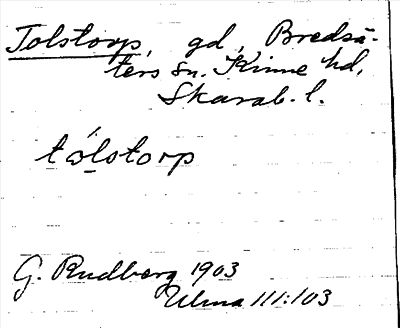 Tolstorp, gd, Bredsä-
ters sn. Kinne hd,
Skarab. l.
tɷ́lstorp
G. Rudberg 1903
Ulma 111:103